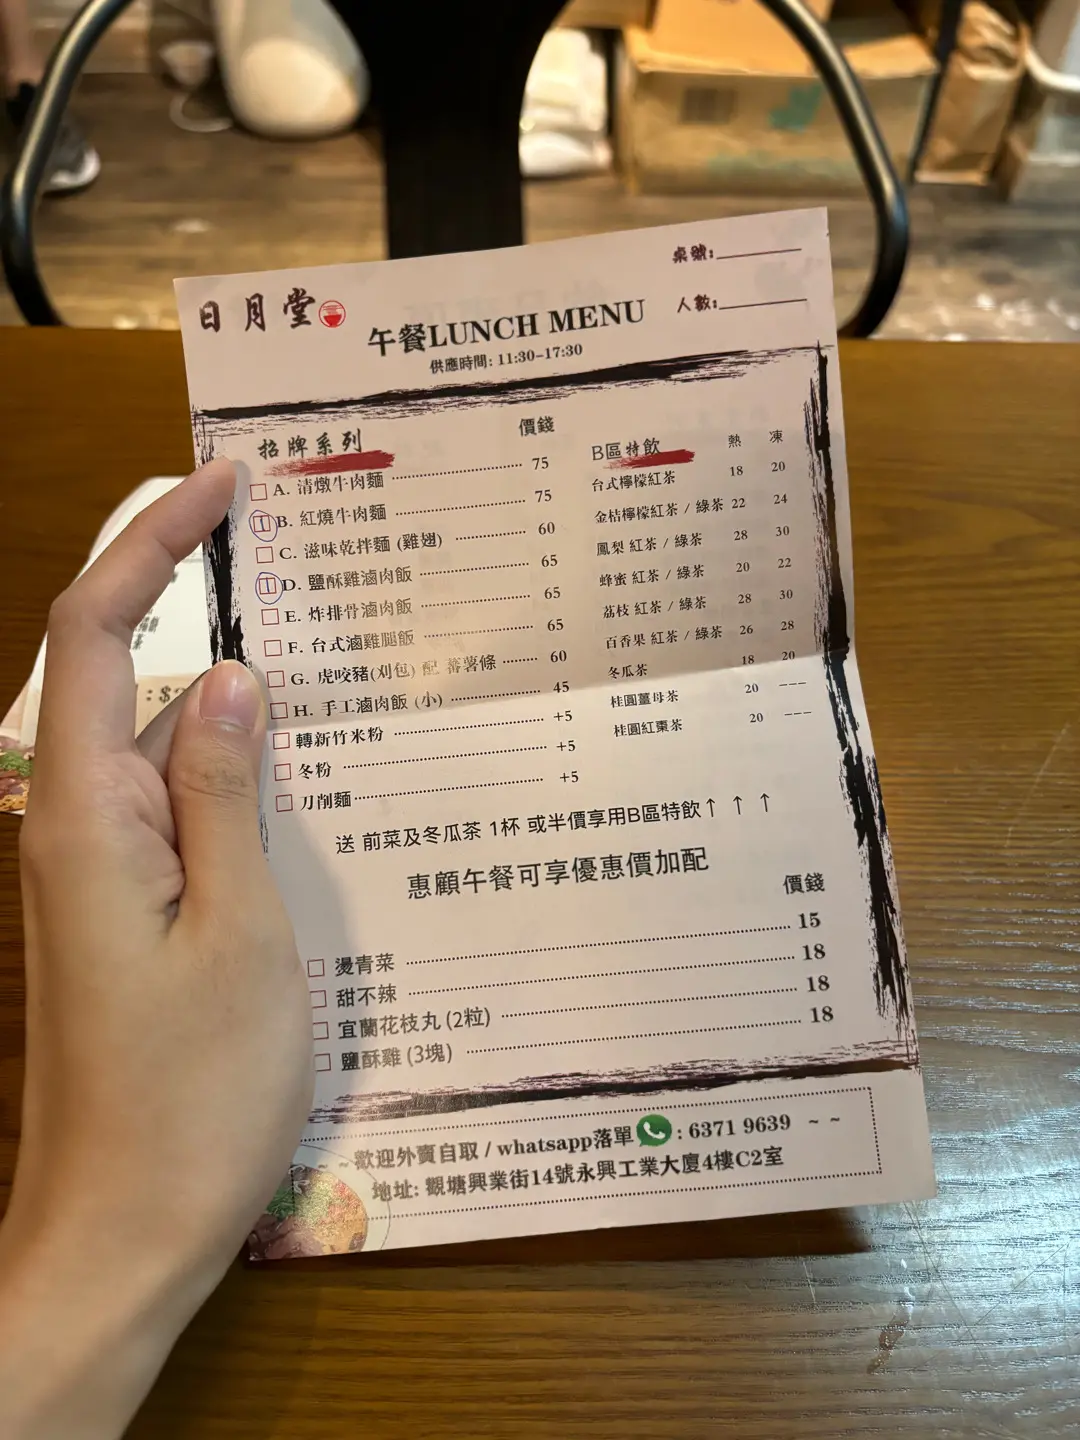 桌號:
人數:
日月堂
午餐LUNCH MENU
供應時間: 11:30-17:30
招牌系列 價錢
A. 清燉牛肉麵 75
B. 紅燒牛肉麵 75
C. 滋味乾拌麵 (雞翅) 60
D. 鹽酥雞滷肉飯 65
E. 炸排骨滷肉飯 65
F. 台式滷雞腿飯 65
G. 虎咬豬(刈包) 配 蕃薯條 60
H. 手工滷肉飯 (小) 45
轉新竹米粉 +5
冬粉 +5
刀削麵 +5
B區特飲 熱 凍
台式檸檬紅茶 18 20
金桔檸檬紅茶 / 綠茶 22 24
鳳梨 紅茶 / 綠茶 28 30
蜂蜜 紅茶 / 綠茶 20 22
荔枝 紅茶 / 綠茶 28 30
百香果 紅茶 / 綠茶 26 28
冬瓜茶 18 20
桂圓薑母茶 20 ---
桂圓紅棗茶 20 ---
送 前菜及冬瓜茶 1杯 或半價享用B區特飲↑ ↑ ↑
惠顧午餐可享優惠價加配
價錢
燙青菜 15
甜不辣 18
宜蘭花枝丸 (2粒) 18
鹽酥雞 (3塊) 18
~ ~ 歡迎外賣自取 / whatsapp落單 : 6371 9639 ~ ~
地址: 觀塘興業街14號永興工業大廈4樓C2室